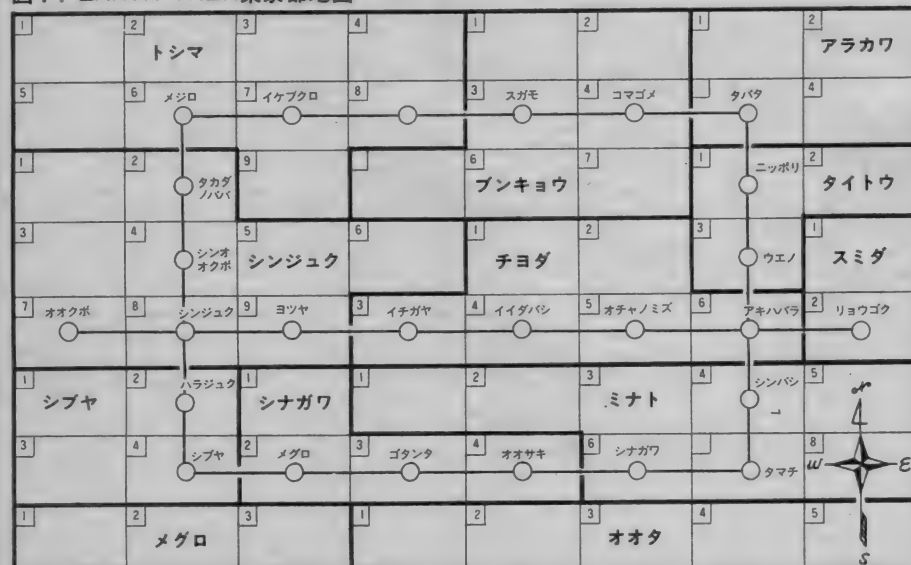 東京都地図
1 2 3 4 1 2 1 2
トシマ アラカワ
5 6 メジロ 7 イケブクロ 8 3 スガモ 4 コマゴメ タバタ 4
1 2 9 6 ブンキョウ 7 1 ニッポリ 2 タイトウ
タカダ
ノババ
3 4 5 シンジュク 6 1 チヨダ 2 3 ウエノ 1 スミダ
シンオ
オクボ
7 オオクボ 8 シンジュク 9 ヨツヤ 3 イチガヤ 4 イイダバシ 5 オチャノミズ 6 アキハバラ 2 リョウゴク
1 シブヤ 2 ハラジュク 1 シナガワ 1 2 3 ミナト 4 シンバシ 5 N
3 4 シブヤ 2 メグロ 3 ゴタンタ 4 オオサキ 6 シナガワ タマチ 8 W E
1 2 メグロ 3 1 2 3 オオタ 4 5 S